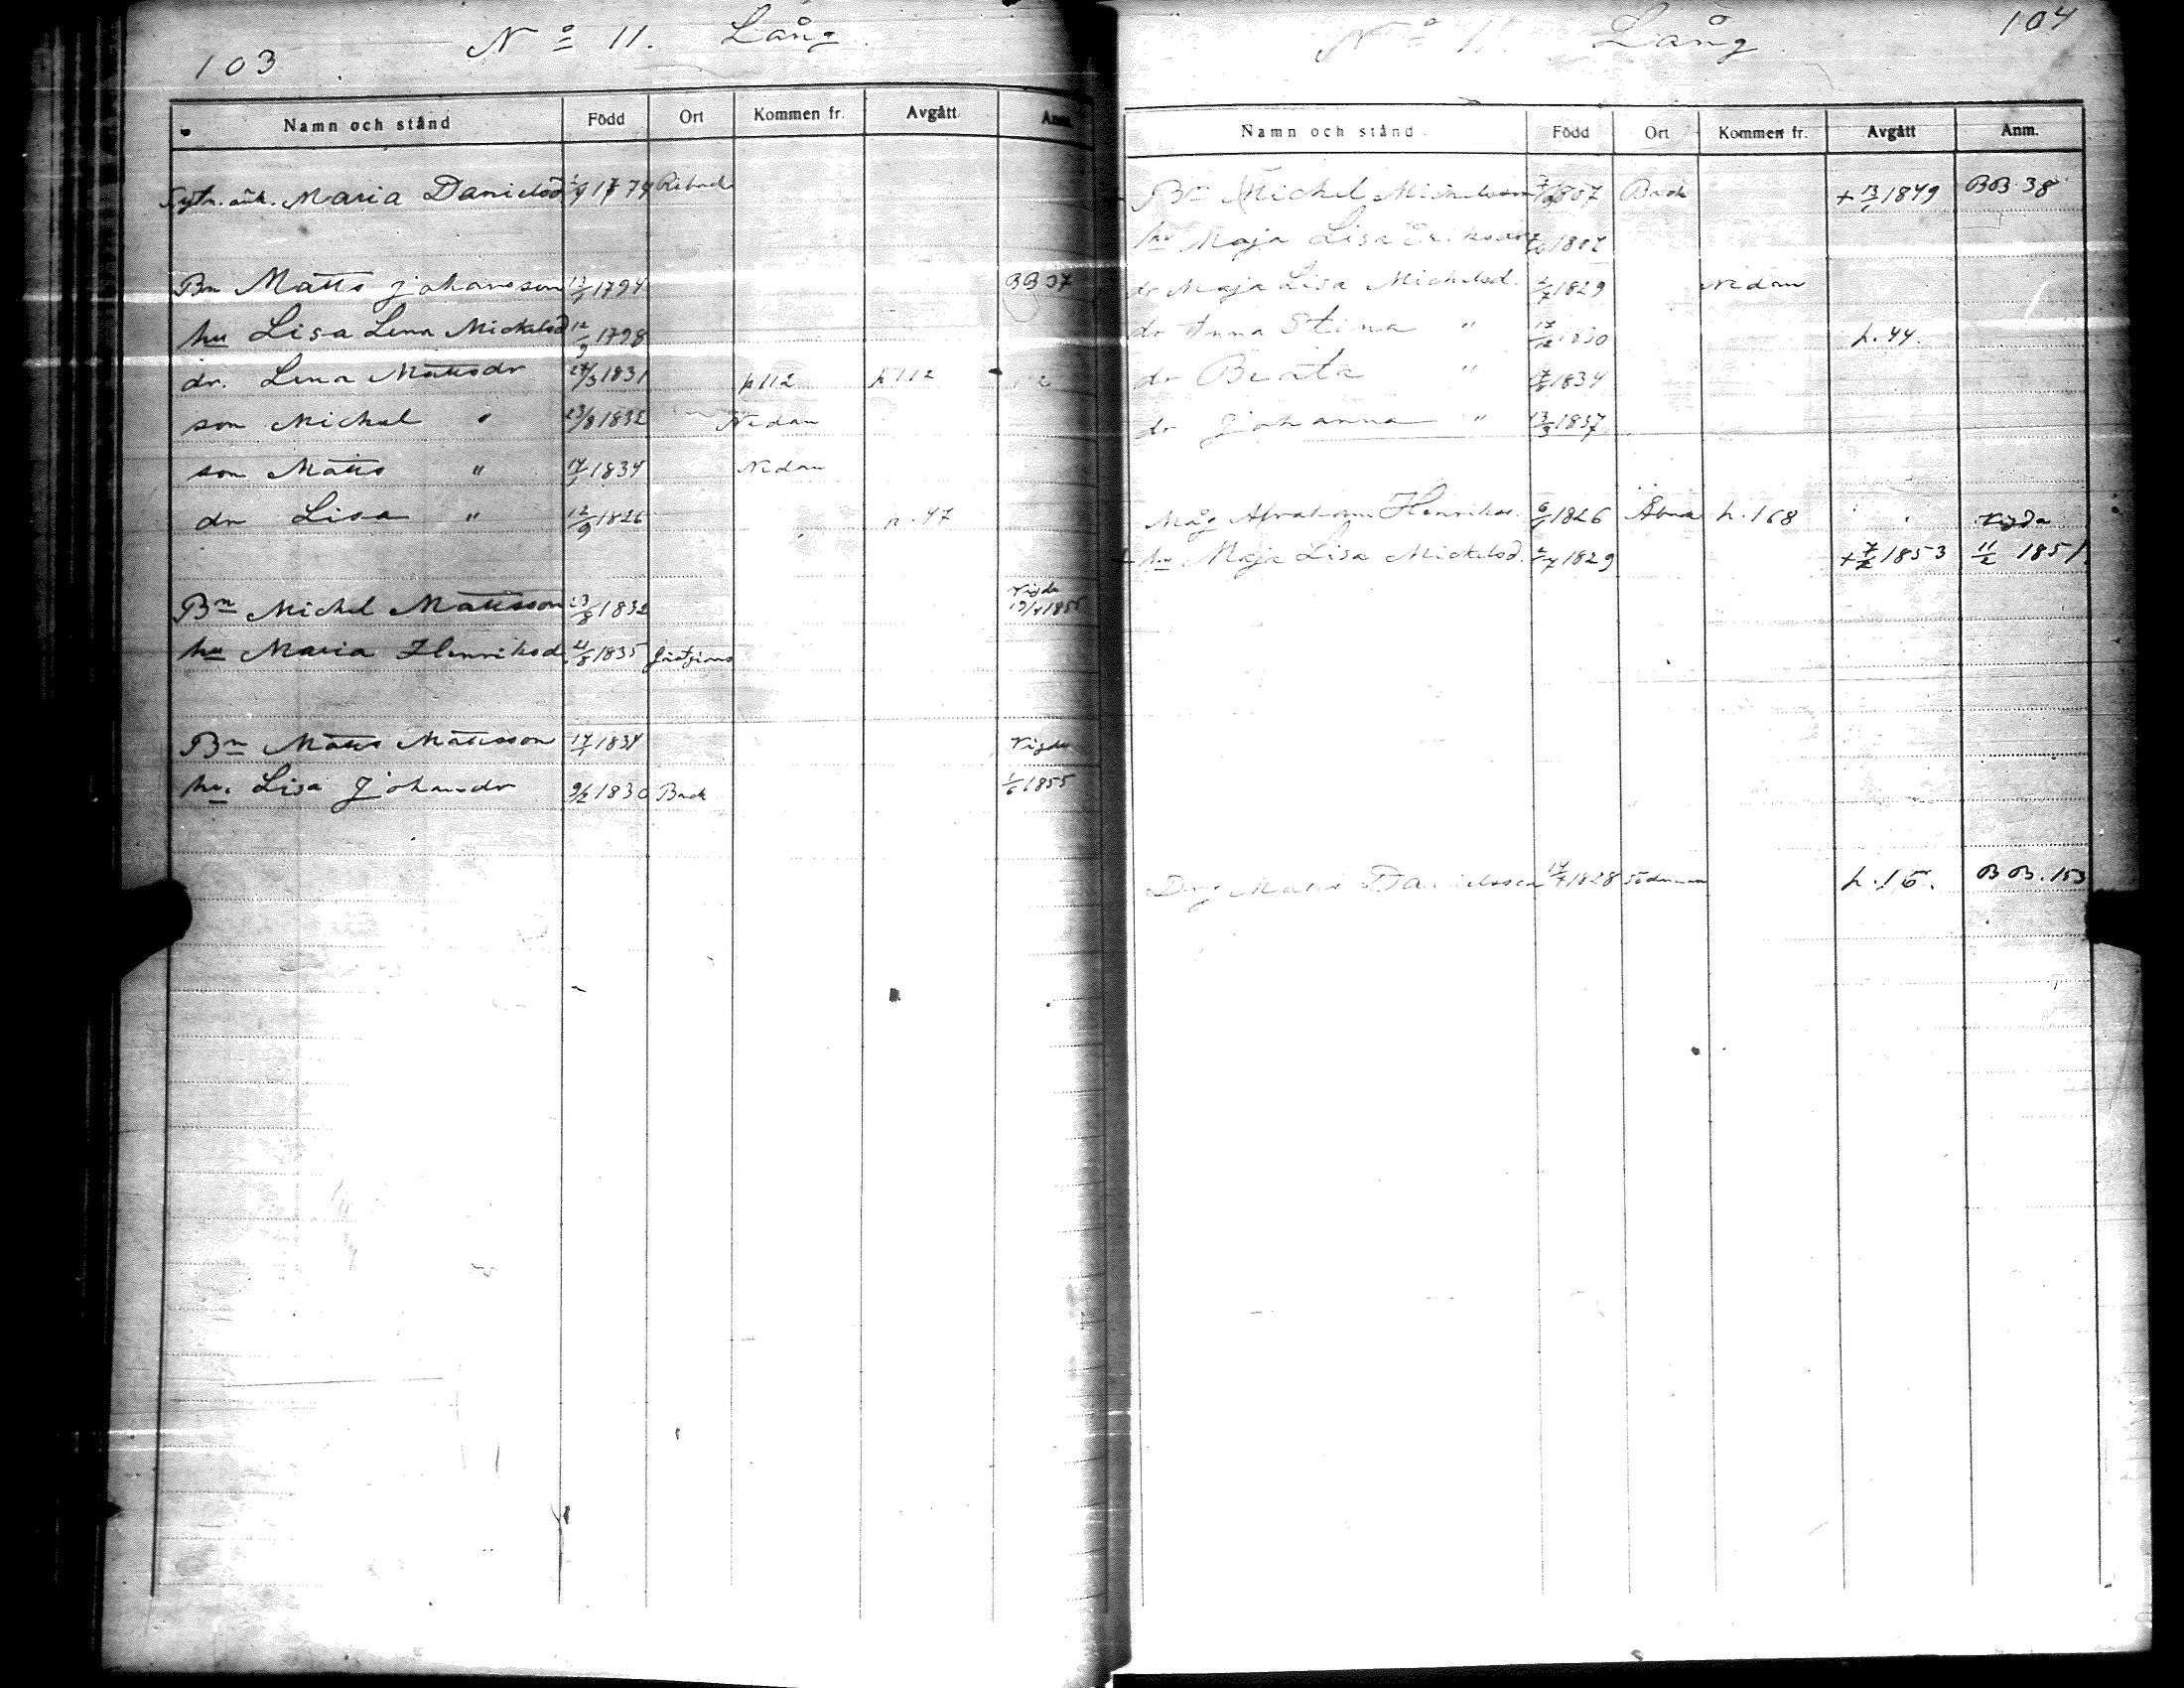 103
No 11. Lång
Namn och stånd Född Ort Kommen fr. Avgått Anm.
Maria Danielsd 1779
Bn Matts Johansson 1794 BB 37
hu Lisa Lena Mickelsd 12/9 1798
dr. Lena Mattsdr 27/3 1831 p 112 p 112
son Michel " 23/8 1832 Nedan
son Matts " 17/1 1834 Nedan
dr Lisa " 12/9 1826 p. 47
Bn Michel Mattsson 23/8 1832 Vigda 19/4 1855
hu Maria Henriksd. 21/8 1835
Bn Matts Mattsson 17/1 1834 Vigda
hu. Lisa Johansdr 9/2 1830 Back 1/6 1855
104
No 11 Lång
Namn och stånd. Född Ort Kommen fr. Avgått Anm.
+ Bn Michel Mickelsson 1807 Back + 13/1 1849 BB 38
hu Maja Lisa Eriksdr 1807
dr Maja Lisa Michelsd. 2/7 1829 Nedan
dr Anna Stina " 17/12 1830 p. 44.
dr Beata " 1834
dr Johanna " 13/3 1837
Måg Abraham Henrikss. 1826 p. 168 Vigda
+ hu Maja Lisa Mickelsd. 2/7 1829 + 7/2 1853 11/2 1851
Dng Matts Danielsson 1828 Söderman p. 15. BB. 153